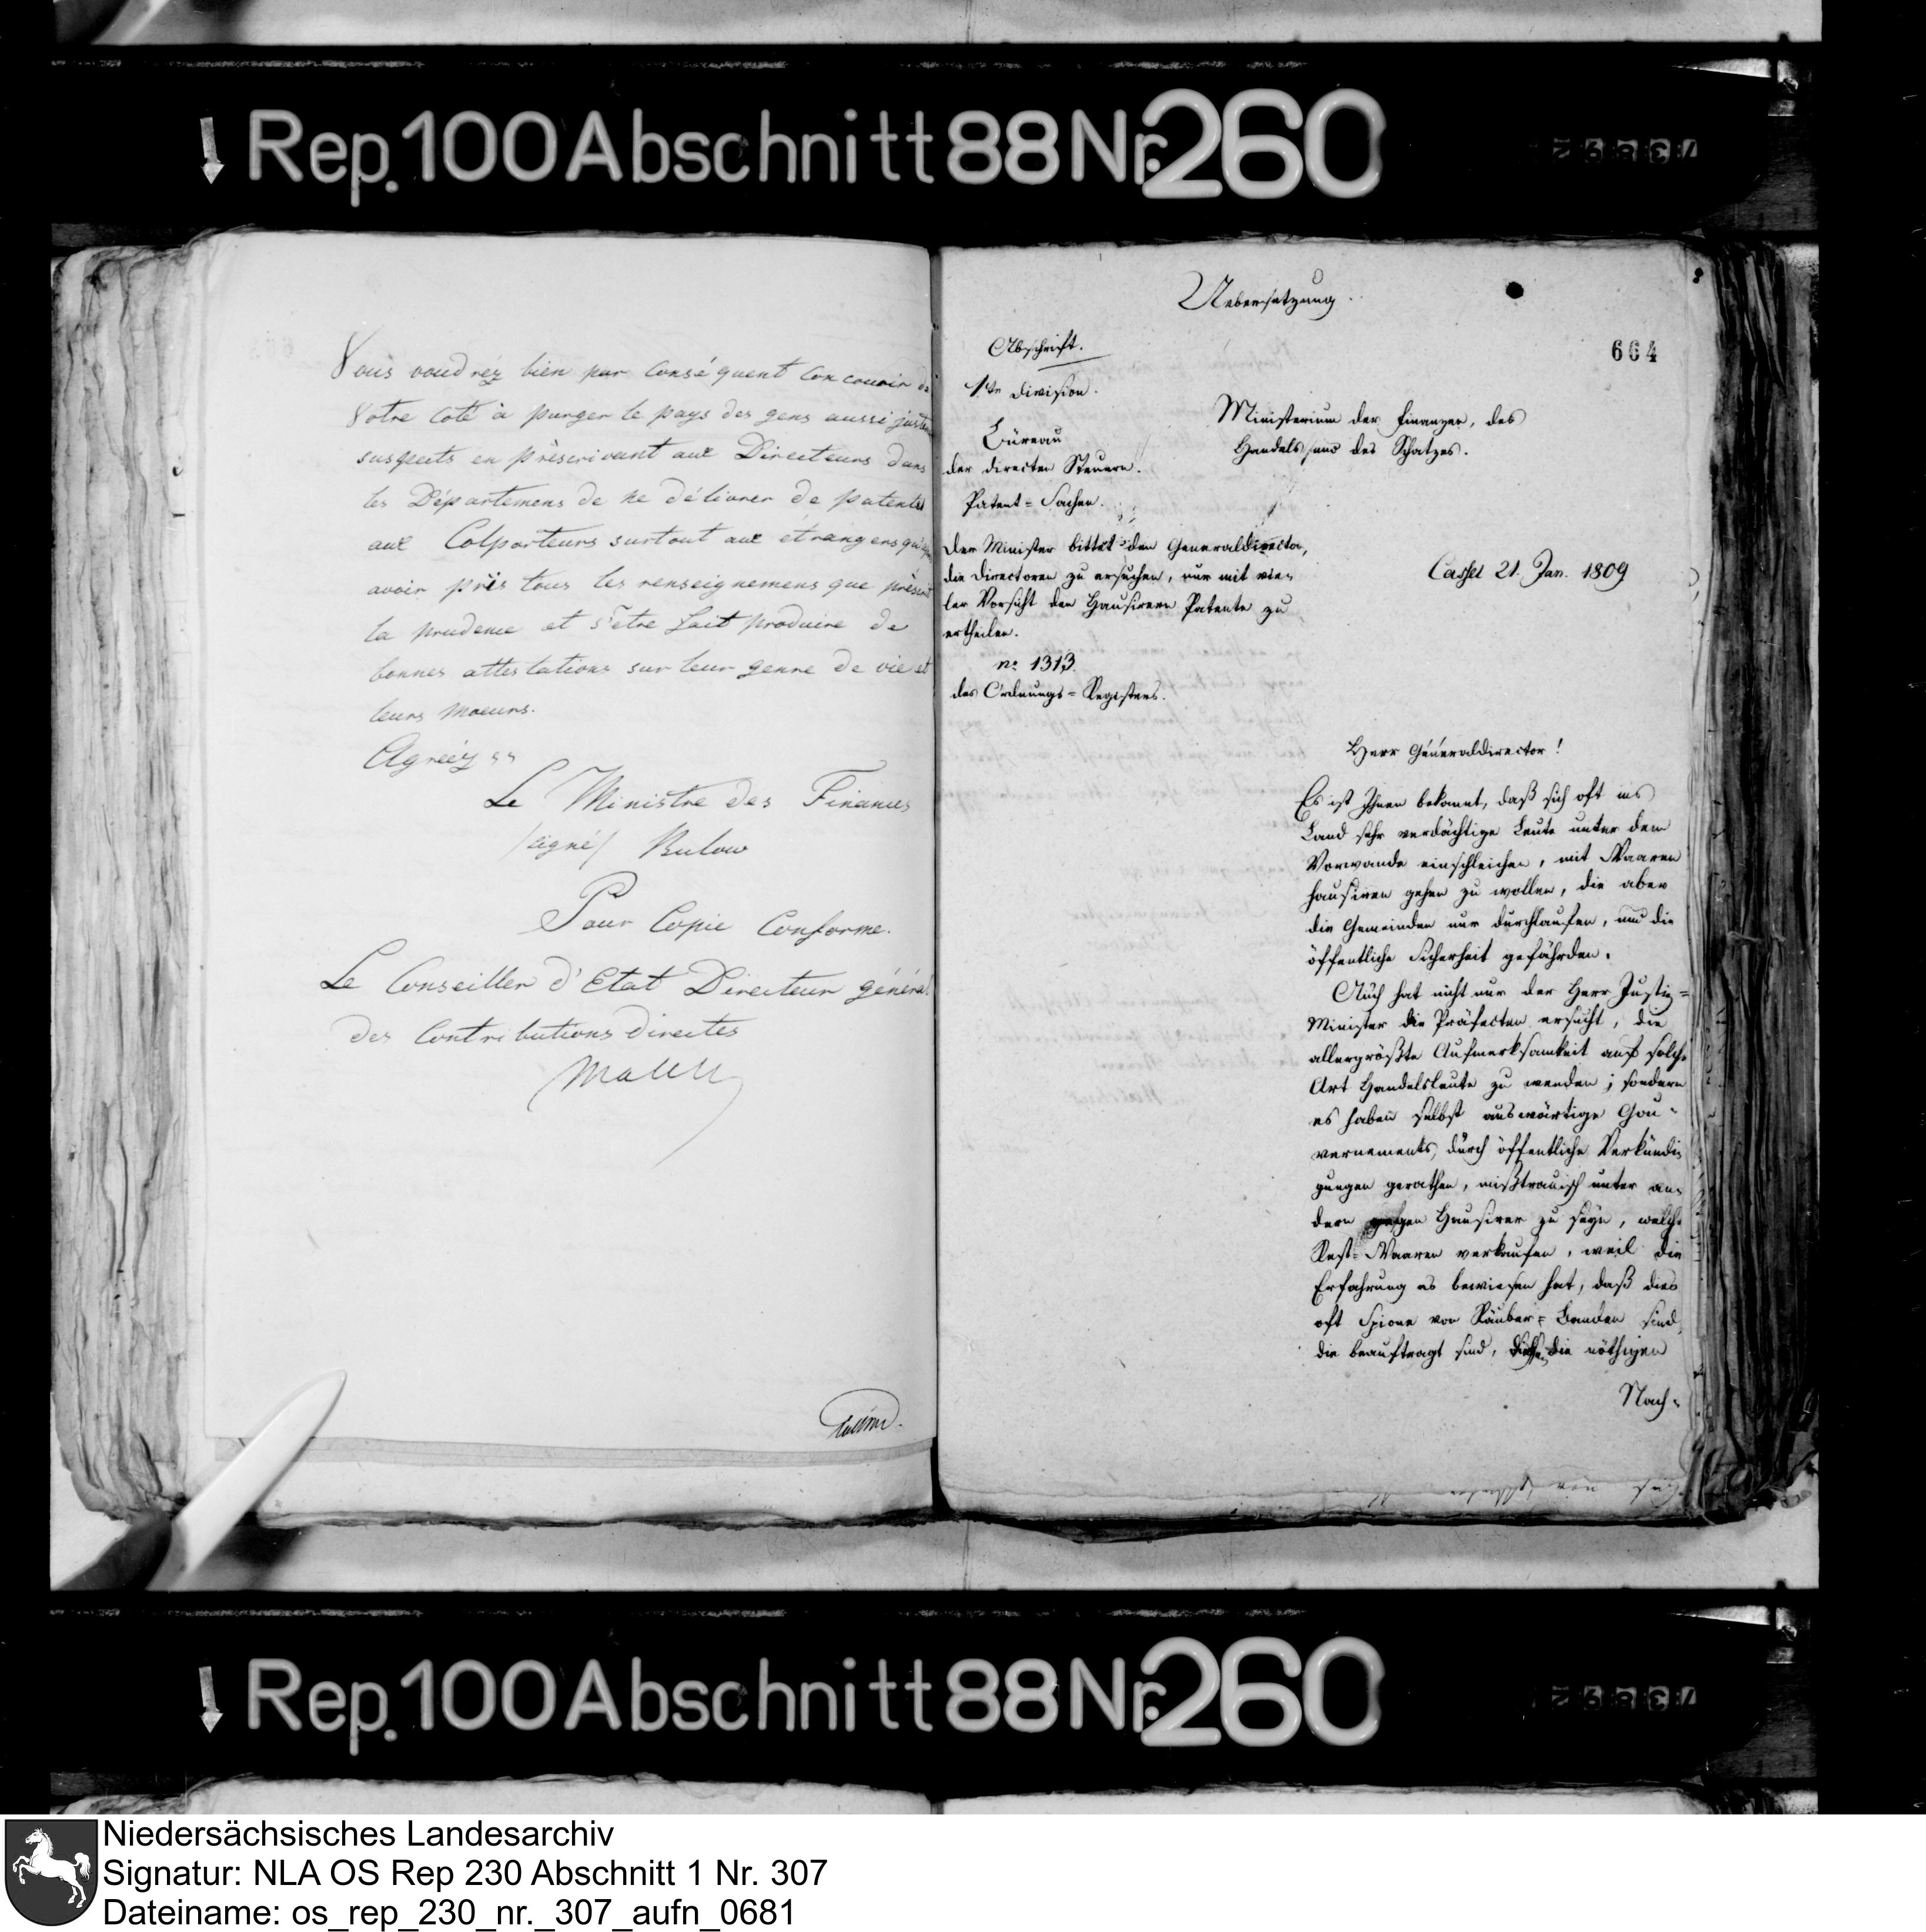 Rep. 100 Abschnitt 88 Nr. 260
Vous voudréz bien par conséquent concourir de
Votre coté à purger le pays des gens aussi juste
suspects en préscrivant aux Directeurs dans
les Départemens de ne délivrer de patentes
aux Colporteurs surtout aux étrangers qu'
avoir pris tous les renseignemens que préscrit
la prudence et s'etre fait produire de
bonnes attestations sur leur genre de vie et
leurs moeurs.
Agréez
Le Ministre des Finances
/signé/ Bulow
Pour Copie Conforme.
Le Conseiller d'Etat Directeur général
des Contributions directes
Uebersetzung.
664
Abschrift.
1te Division.
Büreau
der directen Steuern.
Patent=Sachen.
Der Minister bittet den Generaldirector,
die Directoren zu ersuchen, nur mit vie=
ler Vorsicht den Hausirern Patente zu
ertheilen.
no 1313.
des Ordnungs=Registers.
Ministerium der Finanzen, des
Handels und des Schatzes.
Cassel 21. Jan. 1809
Herr Géneraldirector!
Es ist Ihnen bekannt, daß sich oft ins
Land sehr verdächtige Leute unter dem
Vorwande einschleichen, mit Waaren
hausiren gehen zu wollen, die aber
die Gemeinden nur durchlaufen, und die
öffentliche Sicherheit gefährden.
Auch hat nicht nur der Herr Justiz=
Minister die Präfecten ersucht, die
allergrößte Aufmerksamkeit auf solche
Art Handelsleute zu wenden; sondern
es haben selbst auswärtige Gou=
vernements, durch öffentliche Verkündi=
gungen gerathen, mißtrauisch unter an=
dern gegen Hausirer zu seyn, welche
Rest=Waaren verkaufen, weil die
Erfahrung es bewiesen hat, daß dies
oft Spione von Räuber=Banden sind,
die beauftragt sind, die nöthigen
Nach=
Rep. 100 Abschnitt 88 Nr. 260
Niedersächsisches Landesarchiv
Signatur: NLA OS Rep 230 Abschnitt 1 Nr. 307
Dateiname: os_rep_230_nr._307_aufn_0681